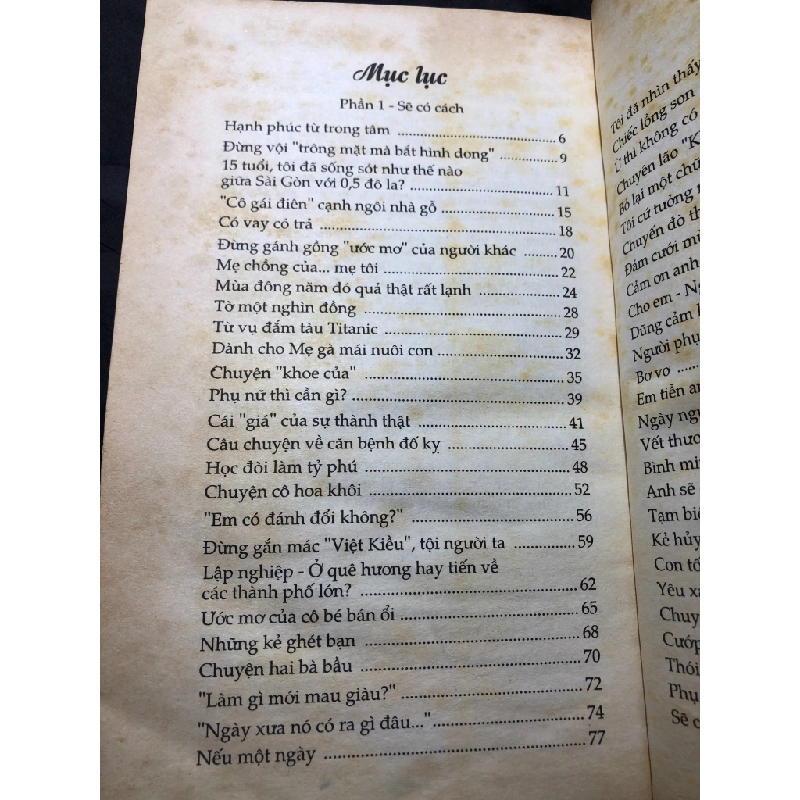 Mục lục
Phần 1 - Sẽ có cách
Hạnh phúc từ trong tâm ........ 6
Đừng vội "trông mặt mà bắt hình dong" ........ 9
15 tuổi, tôi đã sống sót như thế nào
giữa Sài Gòn với 0,5 đô la? ........ 11
"Cô gái điên" cạnh ngôi nhà gỗ ........ 15
Có vay có trả ........ 18
Đừng gánh gồng "ước mơ" của người khác ........ 20
Mẹ chồng của... mẹ tôi ........ 22
Mùa đông năm đó quả thật rất lạnh ........ 24
Tờ một nghìn đồng ........ 28
Từ vụ đắm tàu Titanic ........ 29
Dành cho Mẹ gà mái nuôi con ........ 32
Chuyện "khoe của" ........ 35
Phụ nữ thì cần gì? ........ 39
Cái "giá" của sự thành thật ........ 41
Câu chuyện về căn bệnh đố kỵ ........ 45
Học đòi làm tỷ phú ........ 48
Chuyện cô hoa khôi ........ 52
"Em có đánh đổi không?" ........ 56
Đừng gắn mác "Việt Kiều", tội người ta ........ 59
Lập nghiệp - Ở quê hương hay tiến về
các thành phố lớn? ........ 62
Ước mơ của cô bé bán ổi ........ 65
Những kẻ ghét bạn ........ 68
Chuyện hai bà bầu ........ 70
"Làm gì mới mau giàu?" ........ 72
"Ngày xưa nó có ra gì đâu..." ........ 74
Nếu một ngày ........ 77
Tôi đã nhìn thấy
Chiếc lồng son
Ừ thì không có
Chuyện láo "K
Bỏ lại một chữ
Tôi cứ tưởng
Chuyến đò
Đám cưới
Cảm ơn anh
Cho em -
Dũng cảm
Người phụ
Bơ vơ
Em tiễn
Ngày
Vết
Bình
Anh sẽ
Tạm
Kẻ hủy
Con
Yêu
Cướp
Thói
Phụ
Sẽ